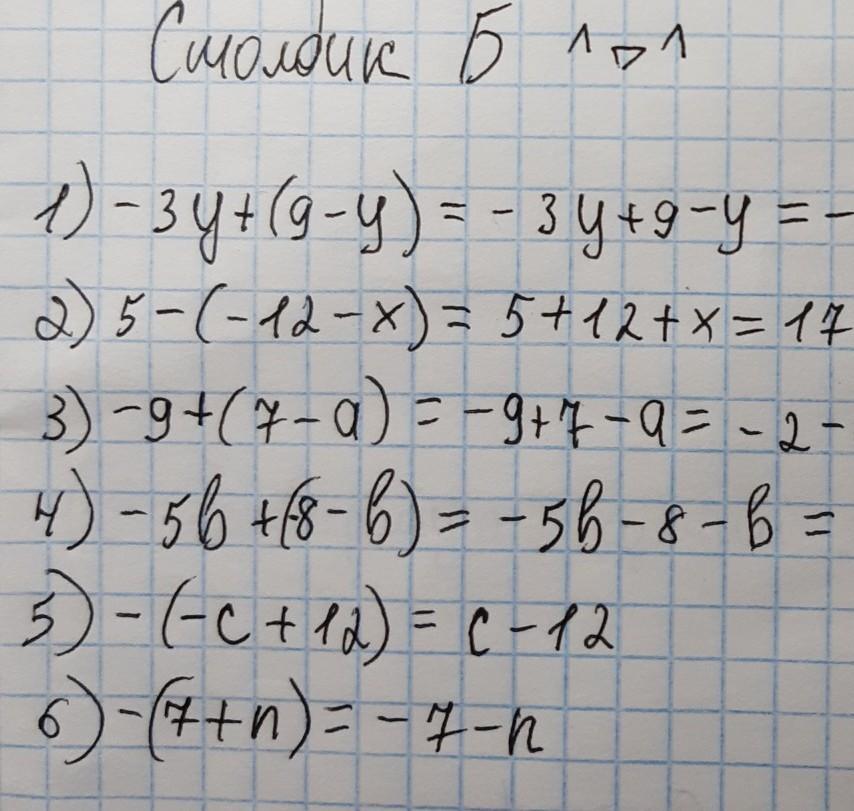 Столбик Б
1) -3y+(9-y) = -3y+9-y = -
2) 5-(-12-x) = 5+12+x = 17
3) -9+(7-a) = -9+7-a = -2-
4) -5b+(-8-b) = -5b-8-b =
5) -(-c+12) = c-12
6) -(7+n) = -7-n